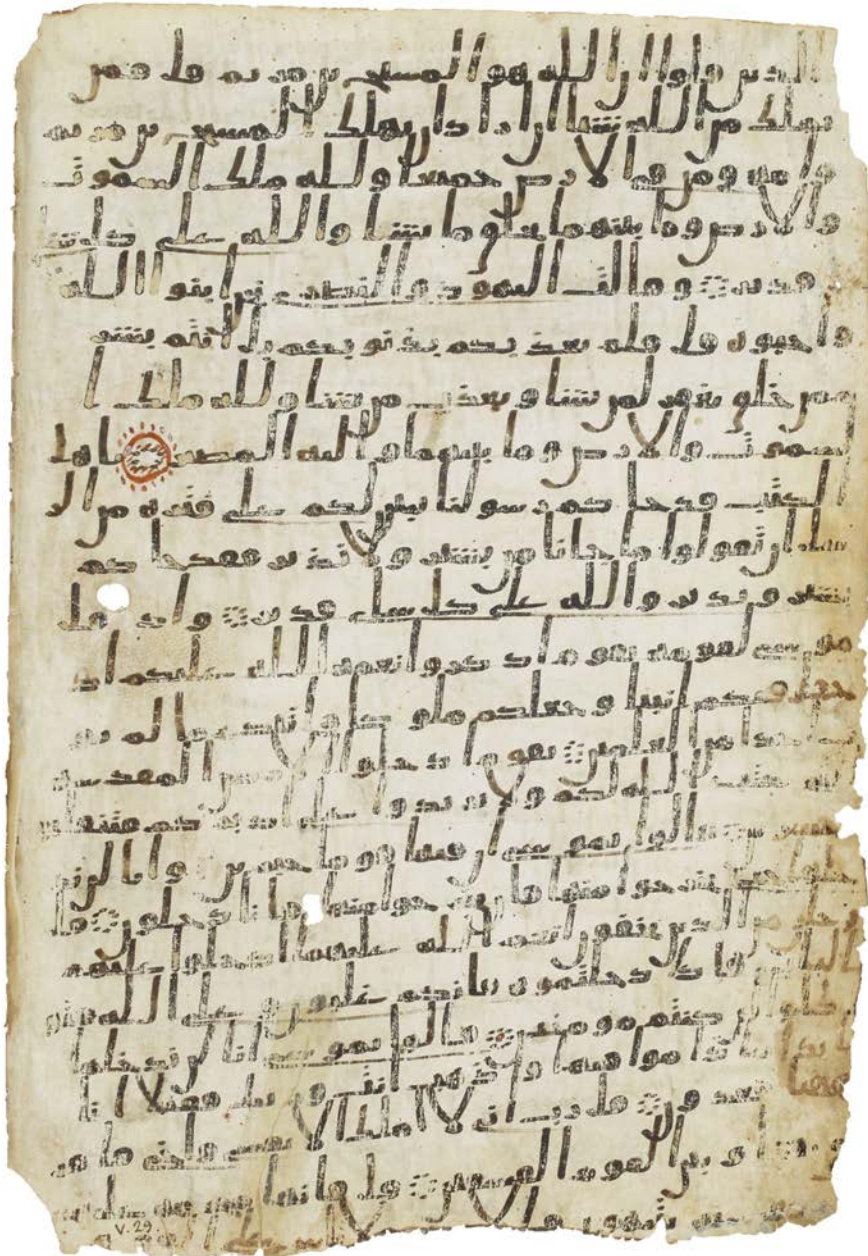 الذين قالوا ان الله هو المسيح بن مريم قل فمن
يملك من الله شيا ان اراد ان يهلك المسيح بن مريم
وامه ومن في الارض جميعا ولله ملك السموت
والارض وما بينهما يخلق ما يشا والله على كل شيا
قدير وقالت اليهود والنصرى نحن ابنوا الله
واحبوه قل فلم يعذبكم بذنوبكم بل انتم بشر
ممن خلق يغفر لمن يشا ويعذب من يشا ولله ملك ا
لسموت والارض وما بينهما واليه المصير ياهل
الكتب قد جاكم رسولنا يبين لكم على فترة من الر
سل ان تقولوا ما جانا من بشير ولا نذير فقد جاكم
بشير ونذير والله على كل شي قدير واذ قال
موسى لقومه يقوم اذكروا نعمة الله عليكم اذ
جعل فيكم انبيا وجعلكم ملوكا واتيكم ما لم يو
ت احدا من العلمين يقوم ادخلوا الارض المقدسة
التي كتب الله لكم ولا ترتدوا على ادبركم فتنقلبوا
خسرين قالوا يموسى ان فيها قوما جبرين وانا لن ند
خلها حتى يخرجوا منها فان يخرجوا منها فانا دخلون قا
ل رجلن من الذين يخفون انعم الله عليهما ادخلوا عليهم
الباب فاذا دخلتموه فانكم غلبون وعلى الله فتو
كلوا ان كنتم مومنين قالوا يموسى انا لن ندخلها
ابدا ما داموا فيها فاذهب انت وربك فقتلا انا
ههنا قعدون قال رب اني لا املك الا نفسي واخي فافر
بيننا وبين القوم الفسقين قال فانها محرمة عليهم
سنة يتيهون في الارض
V.29.